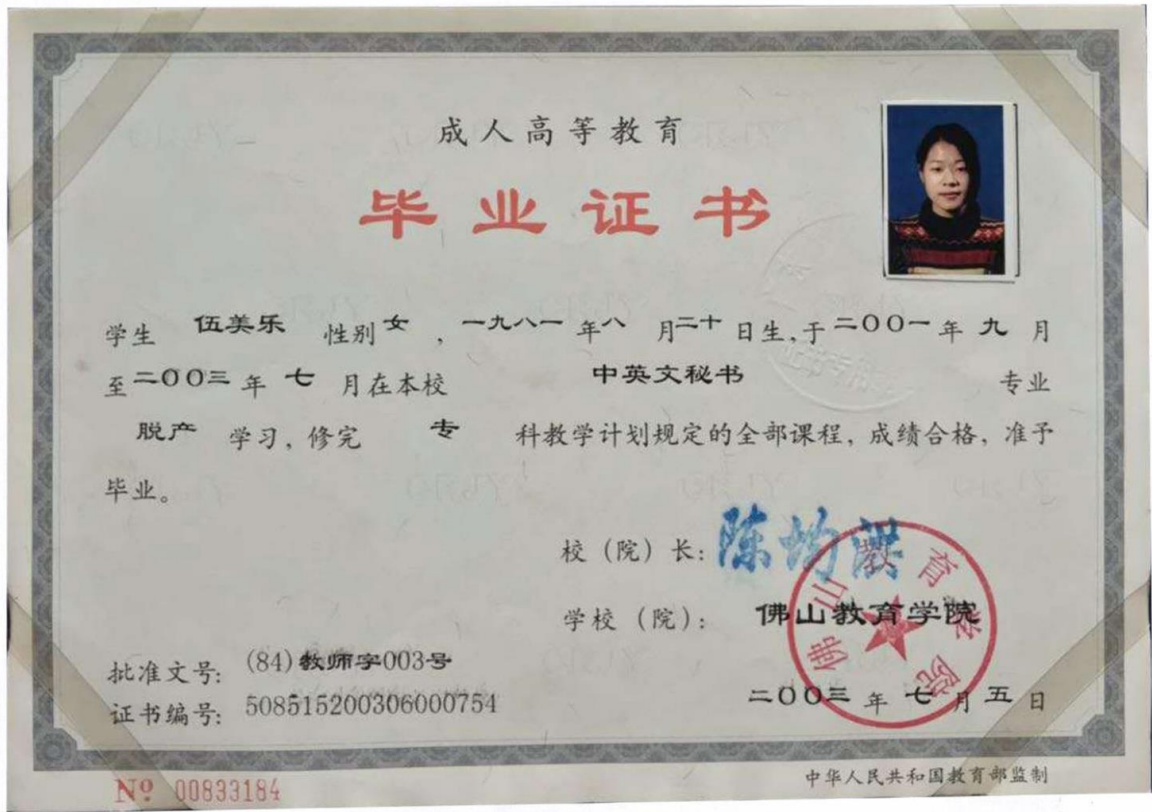 成人高等教育
毕业证书
学生 伍美乐 性别 女 , 一九八一 年 八 月 二十 日生, 于 二00一 年 九 月
至 二00三 年 七 月在本校 中英文秘书 专业
脱产 学习, 修完 专 科教学计划规定的全部课程, 成绩合格, 准予
毕业。
校（院）长: 陈均洪
学校（院）: 佛山教育学院
佛山教育学院
批准文号: (84)教师字003号
二00三 年 七 月 五 日
证书编号: 508515200306000754
№ 00833184
中华人民共和国教育部监制